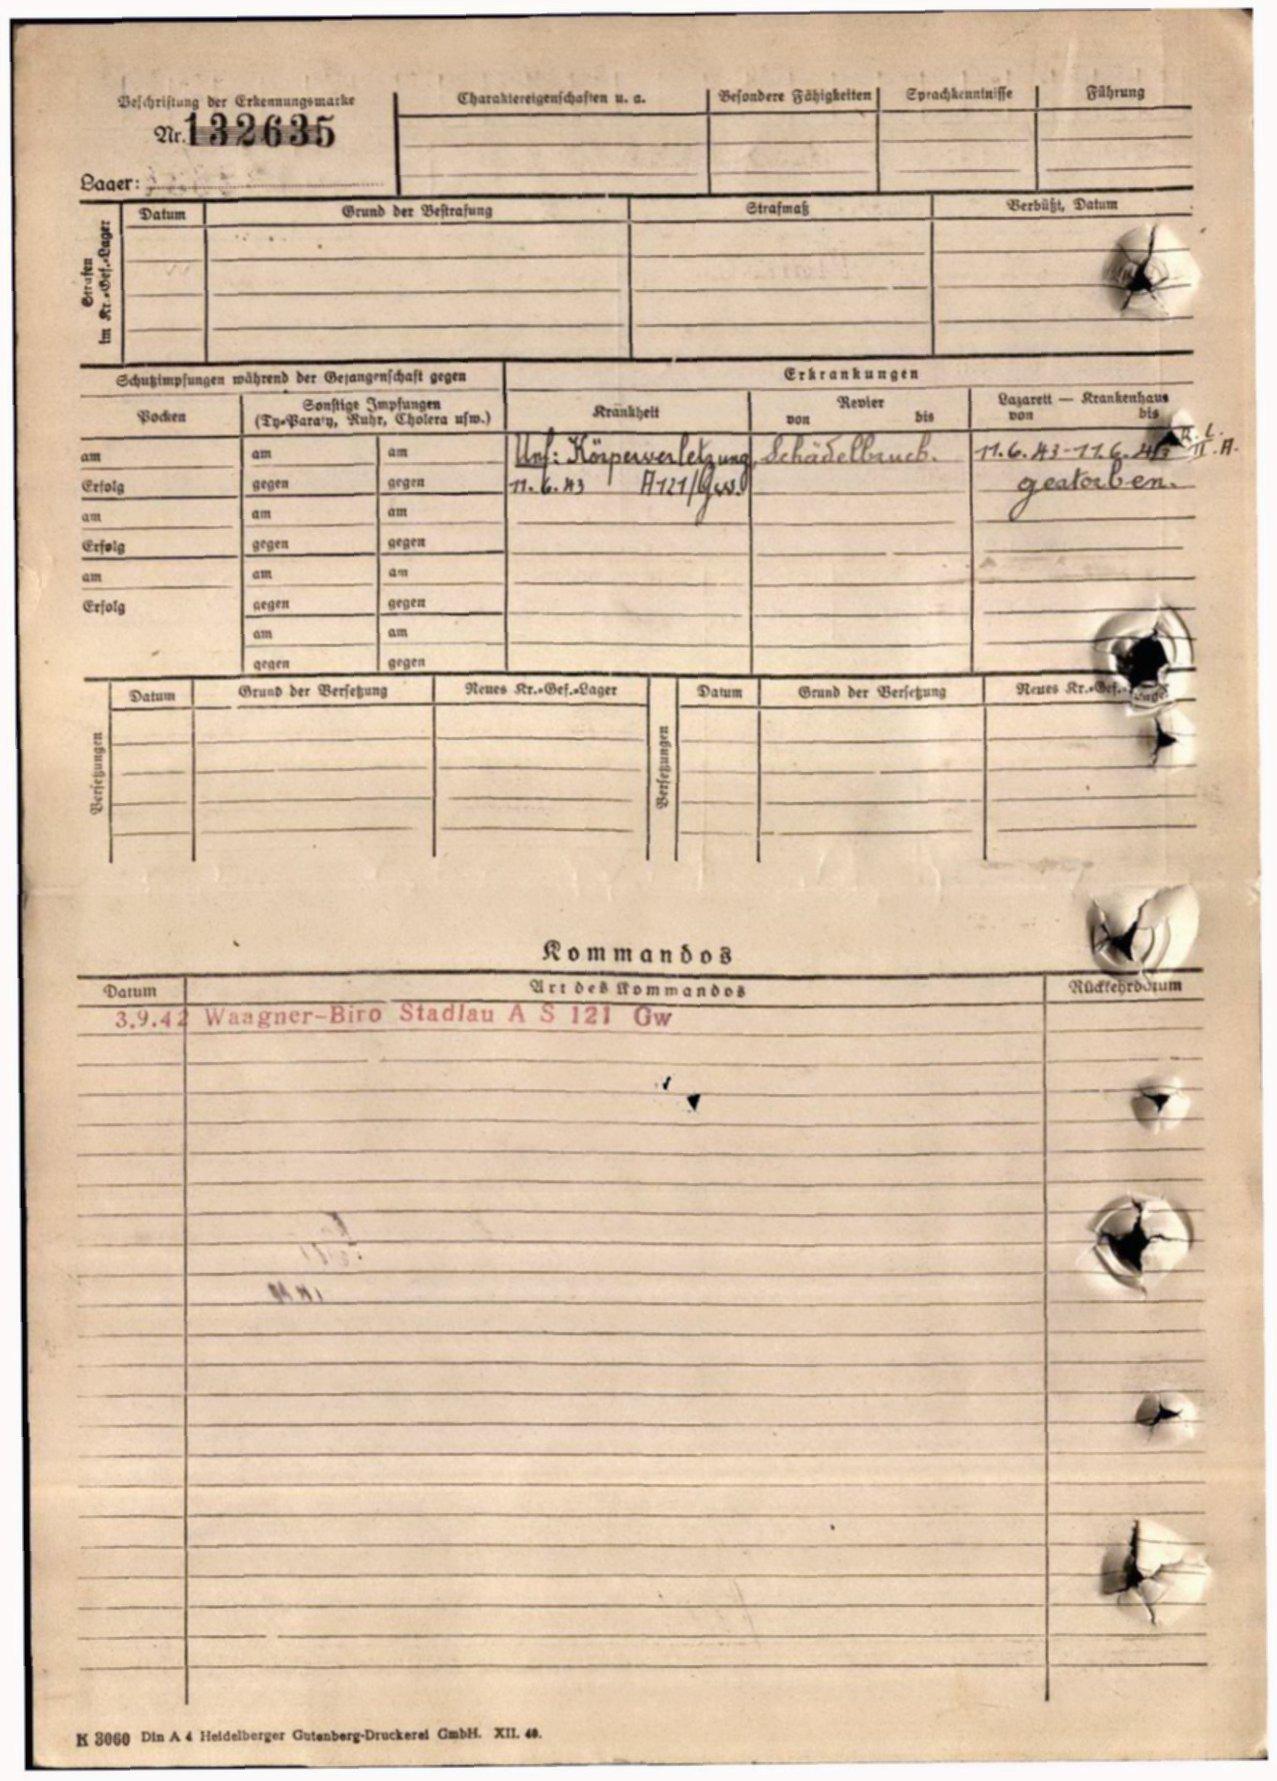 Beschriftung der Erkennungsmarke
Nr. 132635
Lager:
Charaktereigenschaften u. a.
Besondere Fähigkeiten
Sprachkenntnisse
Führung
Strafen
im Kr.-Gef.-Lager
Datum
Grund der Bestrafung
Strafmaß
Verbüßt, Datum
Schutzimpfungen während der Gefangenschaft gegen
Erkrankungen
Pocken
Sonstige Impfungen
(Ty-Paraty, Ruhr, Cholera usw.)
Krankheit
Revier
von bis
Lazarett — Krankenhaus
von bis
am am am Unf: Körperverletzung, Schädelbruch. 11.6.43-11.6.43 R.L. II.A.
Erfolg gegen gegen 11.6.43 A121/Gw. gestorben.
am am am
Erfolg gegen gegen
am am am
Erfolg gegen gegen
am am
gegen gegen
Versetzungen
Datum
Grund der Versetzung
Neues Kr.-Gef.-Lager
Versetzungen
Datum
Grund der Versetzung
Neues Kr.-Gef.-Lager
Kommandos
Datum
Art des Kommandos
Rückkehrdatum
3.9.42 Waagner-Biro Stadlau A S 121 Gw
K 3060 Din A 4 Heidelberger Gutenberg-Druckerei GmbH. XII. 40.